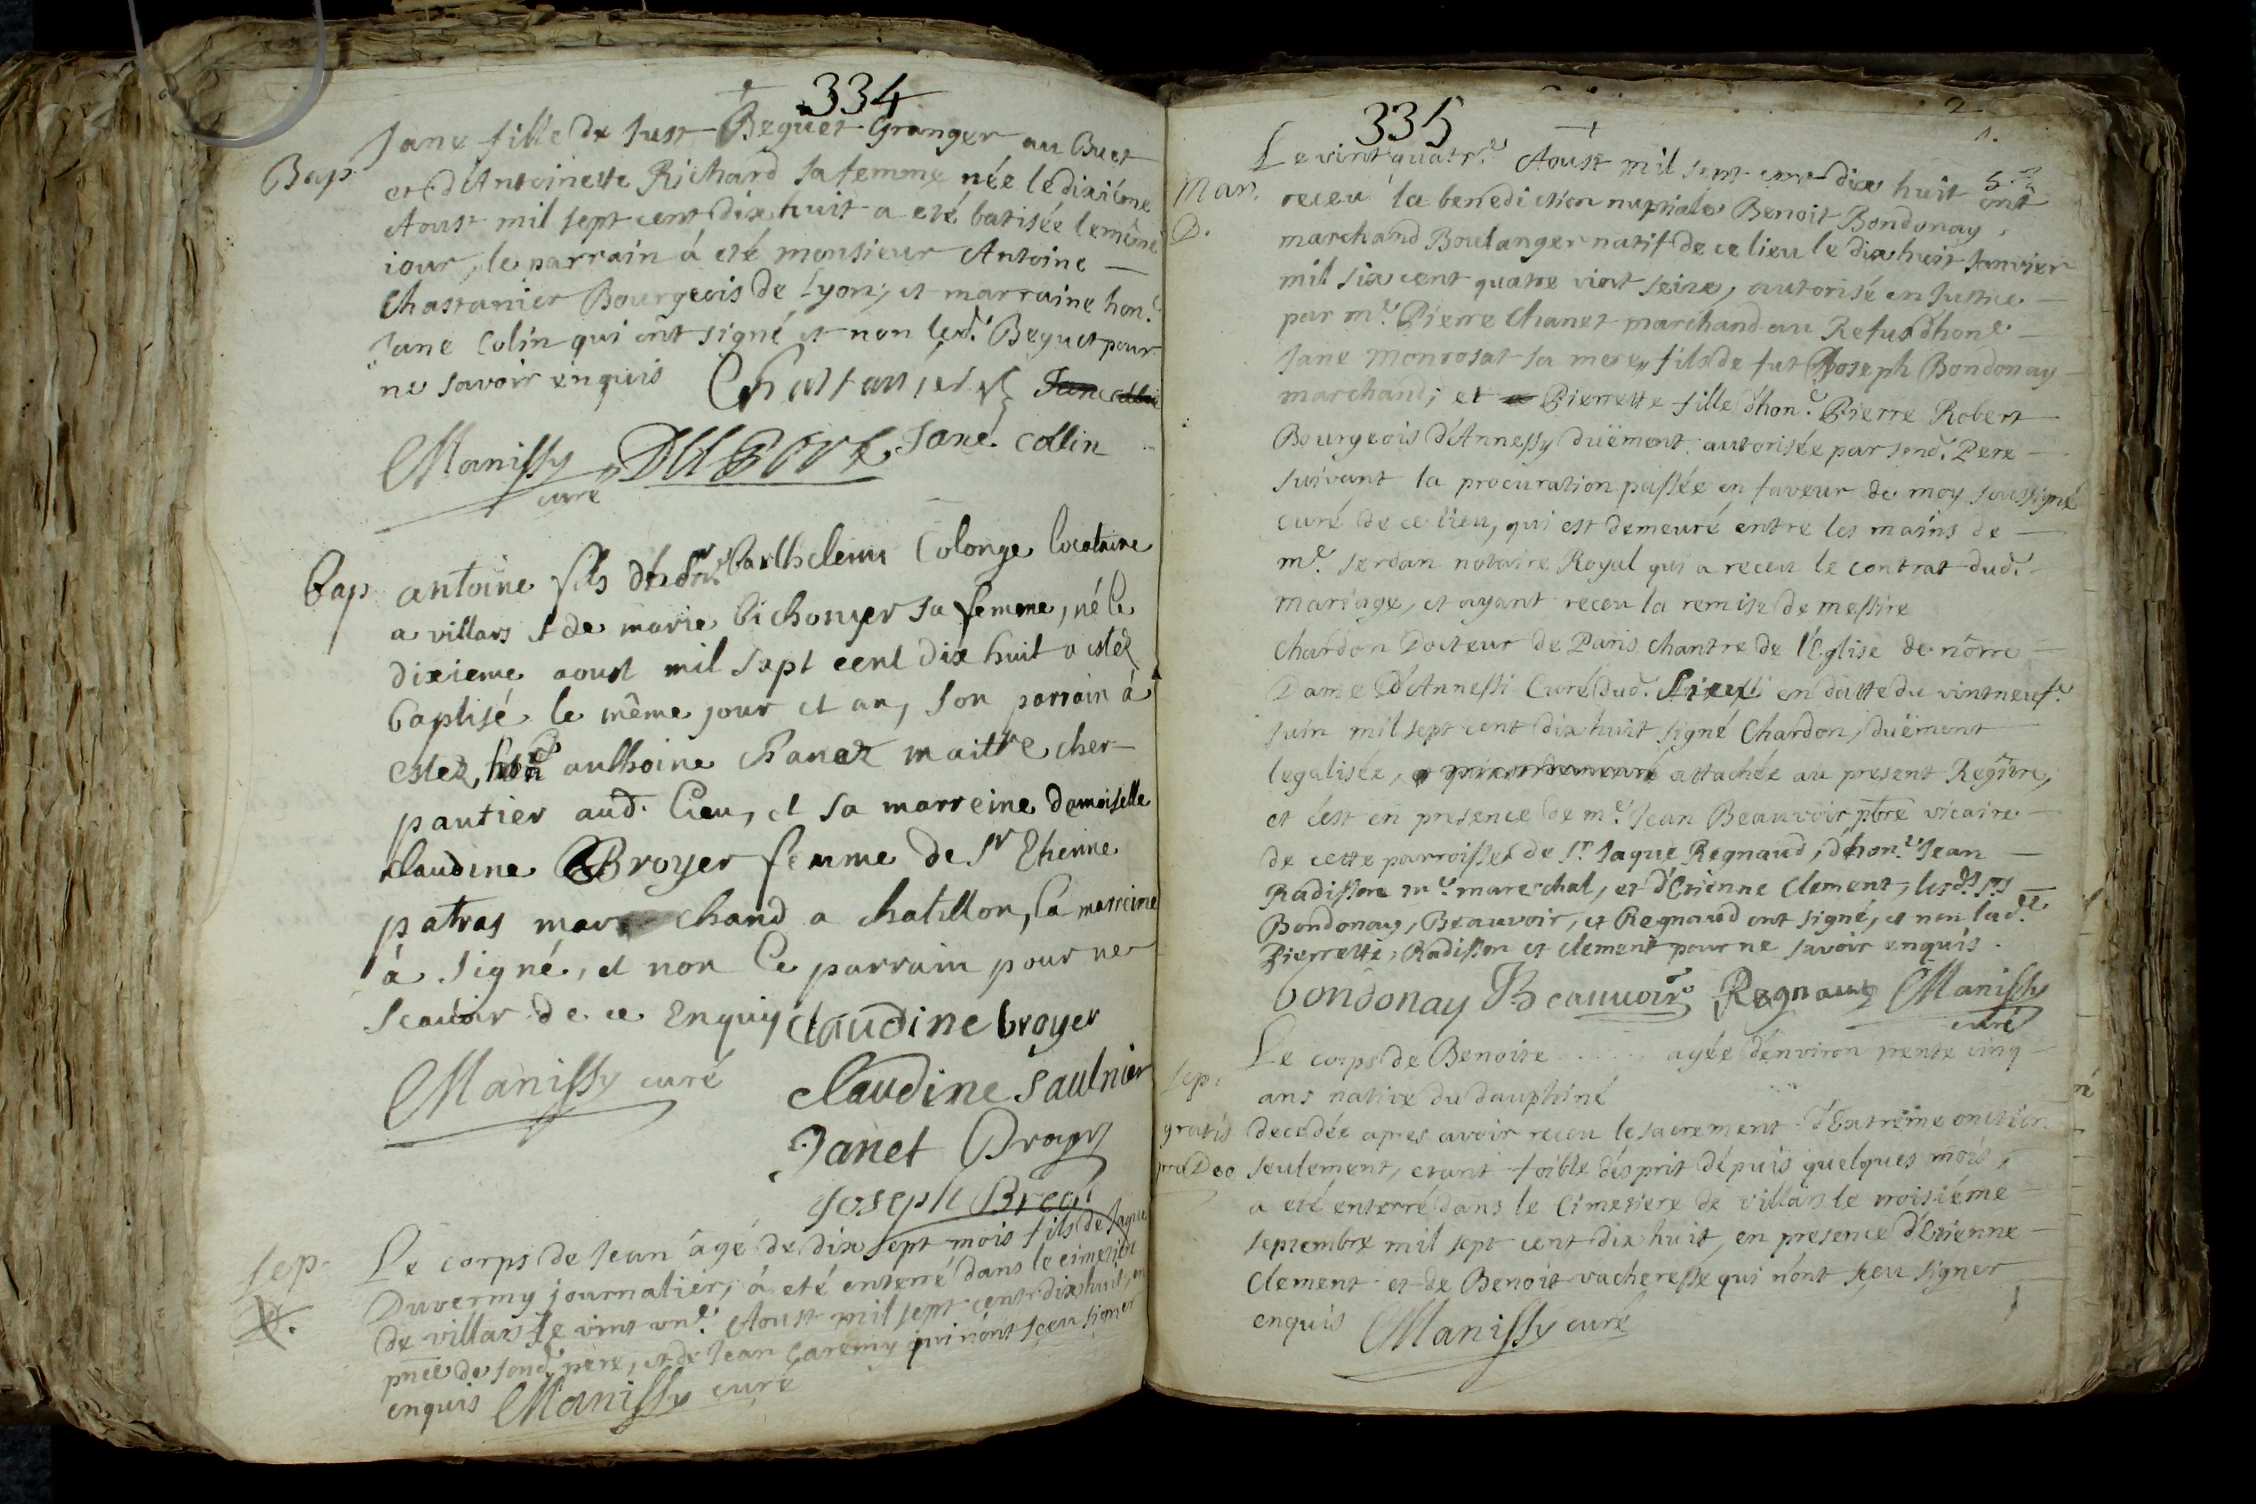 334
Bap. Jane fille de Just Beguet Granger au Buet
et d'Antoinette Richard sa femme née le dixième
Aoust mil sept cent dix huit a eté batisée le même
iour, le parrain á eté monsieur Antoine
Chastanier Bourgeois de Lyon, et marraine hon.e
Jane Colin qui ont signé et non led. Beguet pour
ne savoir enquis Chastanier
Manissy Jane collin
curé
Bap antoine fils Barthelemi Colonge locataire
a villars & de marie bichonyer sa femme, né le
dixieme aoust mil sept cent dix huit a estez
baptisé le même jour et an, son parrain á
estez, anthoine chanez maittre cher-
pantier aud. lieu, et sa marreine demoiselle
claudine Broyer femme de Sr Ethienne
patras mar chand a chatillon, la marreine
á signé, et non le parrain pour ne
scavoir de ce enquis claudine broyer
Manissy curé claudine saulnier
Janet
Joseph
Sep. Le corps de Jean âgé de dix sept mois fils de Jaque
Duvermy journalier, á eté enterré dans le cimetiere
de villars le vint un.e Aoust mil sept cent dix huit, en
pnce de sond. père, et de Jean qui n'ont sçeu signer
enquis Manissy curé
335
2
Le vint quatr.e Aoust mil sept cent dix huit ont
Mar. receu la benediction nuptiale Benoit Bondonay,
marchand Boulanger natif de ce lieu le dix huit Janvier
mil six cent quatre vint seize, autorisé en Justice
par m.e Pierre Chanet marchand au Refus d'hon.e
Jane Monrosat sa mere, fils de fut Joseph Bondonay
marchand; et Pierrette fille d'hon.e Pierre Robert
Bourgeois d'Annessy duëment autorisée par sond. Pere
suivant la procuration passée en faveur de moy soussigné
curé de ce lieu, qui est demeuré entre les mains de
m.e Serdan notaire Royal qui a receu le contrat dud.
mariage, et ayant receu la remise de messire
Chardon Docteur de Paris chantre de l'Eglise de nôtre
Dame d'Annessi Curé dud. en datte du vintneuf.e
Juin mil sept cent dix huit signé Chardon, duëment
legalisée, attachée au present Regitre,
et c'est en presence de m.e Jean Beauvoir pbre vicaire
de cette parroisse, de Sr. Jaque Regnaud, d'hon.e Jean
Radisson m.e mareschal, et d'Etienne Clement, lesds. srs
Bondonay, Beauvoir, et Regnaud ont signé, et non lad.te
Pierrette, Radisson et Clement pour ne savoir enquis.
bondonay Beauuoir Regnaud Manissy
curé
Le corps de Benoite ...... agée d'environ trente cinq
Sep. ans native du dauphiné
gratis decedée apres avoir receu le sacrement d'Extrême onction
pro Deo seulement, etant foible d'esprit depuis quelques mois,
a eté enterré dans le Cimetiere de villars le troisiéme
septembre mil sept cent dix huit, en presence d'Etienne
Clement et de Benoit vacheresse qui n'ont sçeu signer
enquis Manissy curé